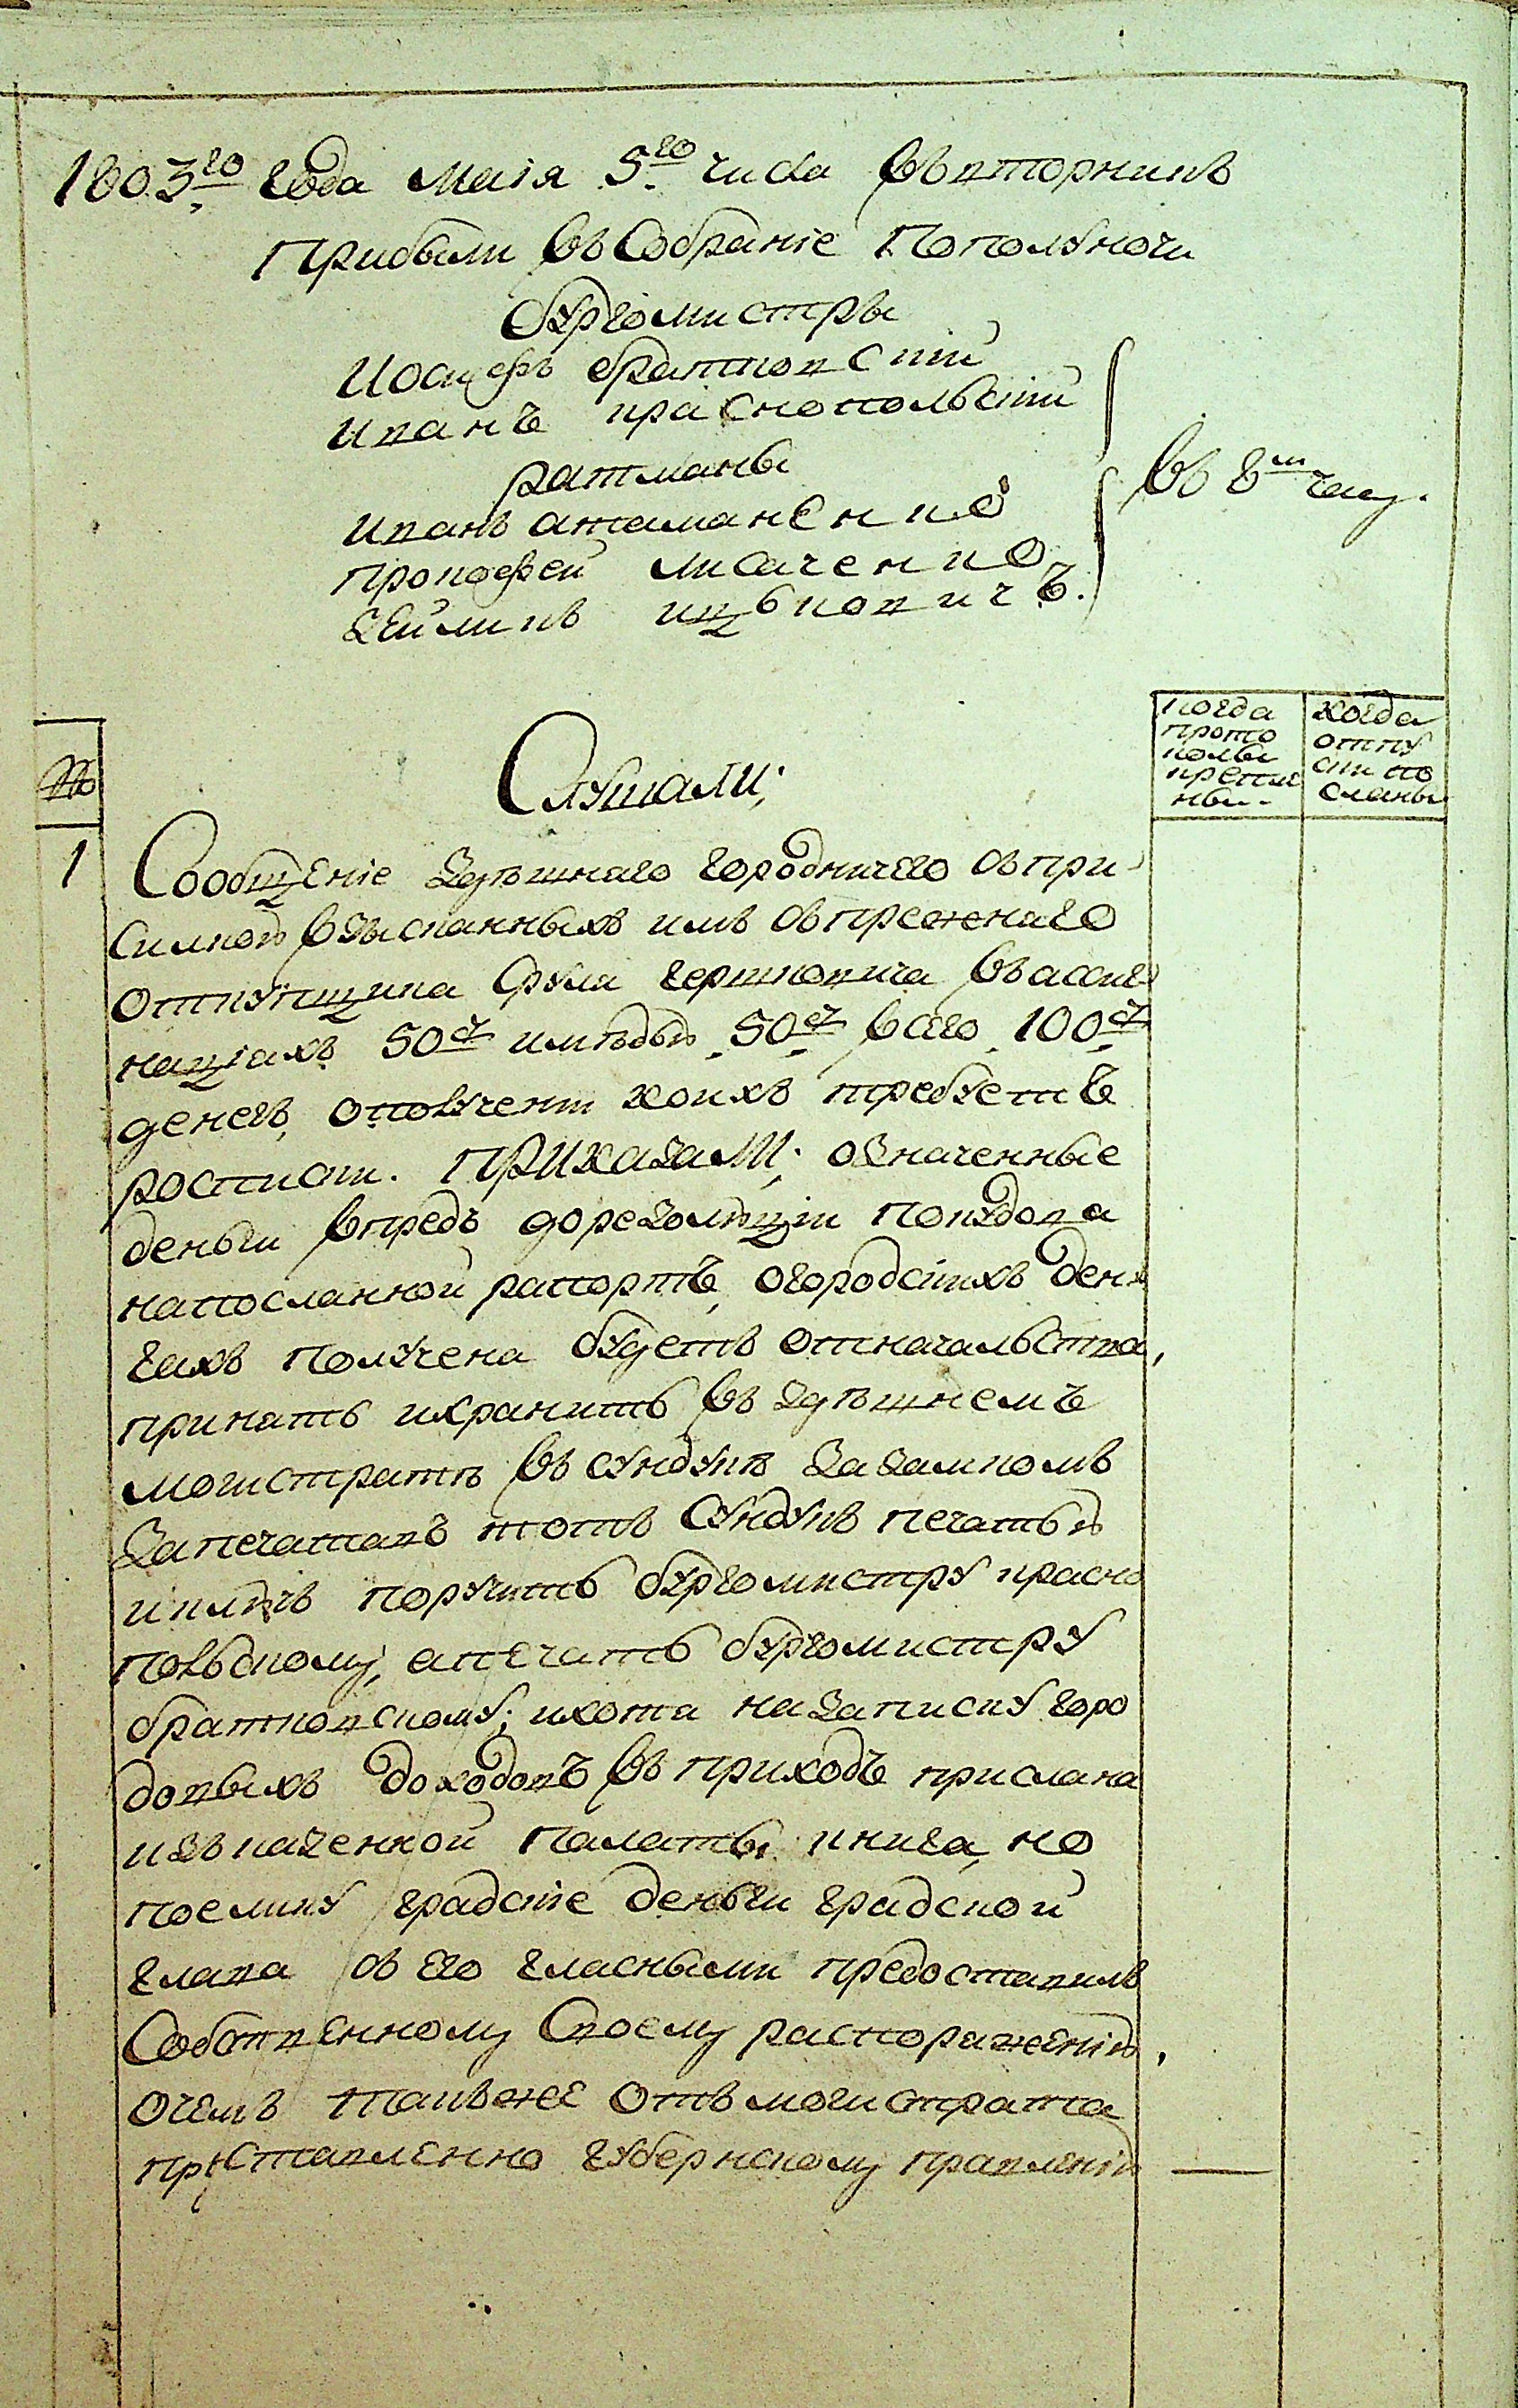 1803го года маія 5го числа въ вторникъ
Прибыли въ Собраніе Пополуночи
бургомистры
Иосифъ братковскій
Иванъ краснопольскій
ратманы
Иванъ атаманенко
Прокофей лисаченко
Зейликъ ицьковичъ.
въ 8м часу.
№
Слушали;
когда прото колы крепле ны.
когда отпу ски по сланы
1
Сообщеніе здѣшнаго городничего съ при
силкою взысканныхъ имъ съ прежнаго
откупщика Сруля гершковича въ ассиг
націахъ 50ть и мѣдью 50ть всего 100ть
денегъ, ополучении коихъ требуетъ
росписки. ПРИКАЗАЛИ; означенные
деньги впредь дорезолюціи покудова
напосланной рапортъ, огородскихъ ден
гахъ получена будетъ отначальства,
принять ихранить въ здѣшнемъ
могистратѣ въ сундукѣ зазамкомъ
Запечатавъ тотъ сундукъ печатью
иключъ поручить бургомистру красно
польскому, апечать бургомистру
братковскому; ихотяназаписку горо
довыхъ доходовъ въ приходъ прислана
изъ казенной палаты книга, но
поелику градскіе деньги градской
глава съ его гласными предоставилъ
Собственному Своему распоряженію,
очемъ такъже отъ могистрата
представленно губернскому правленію